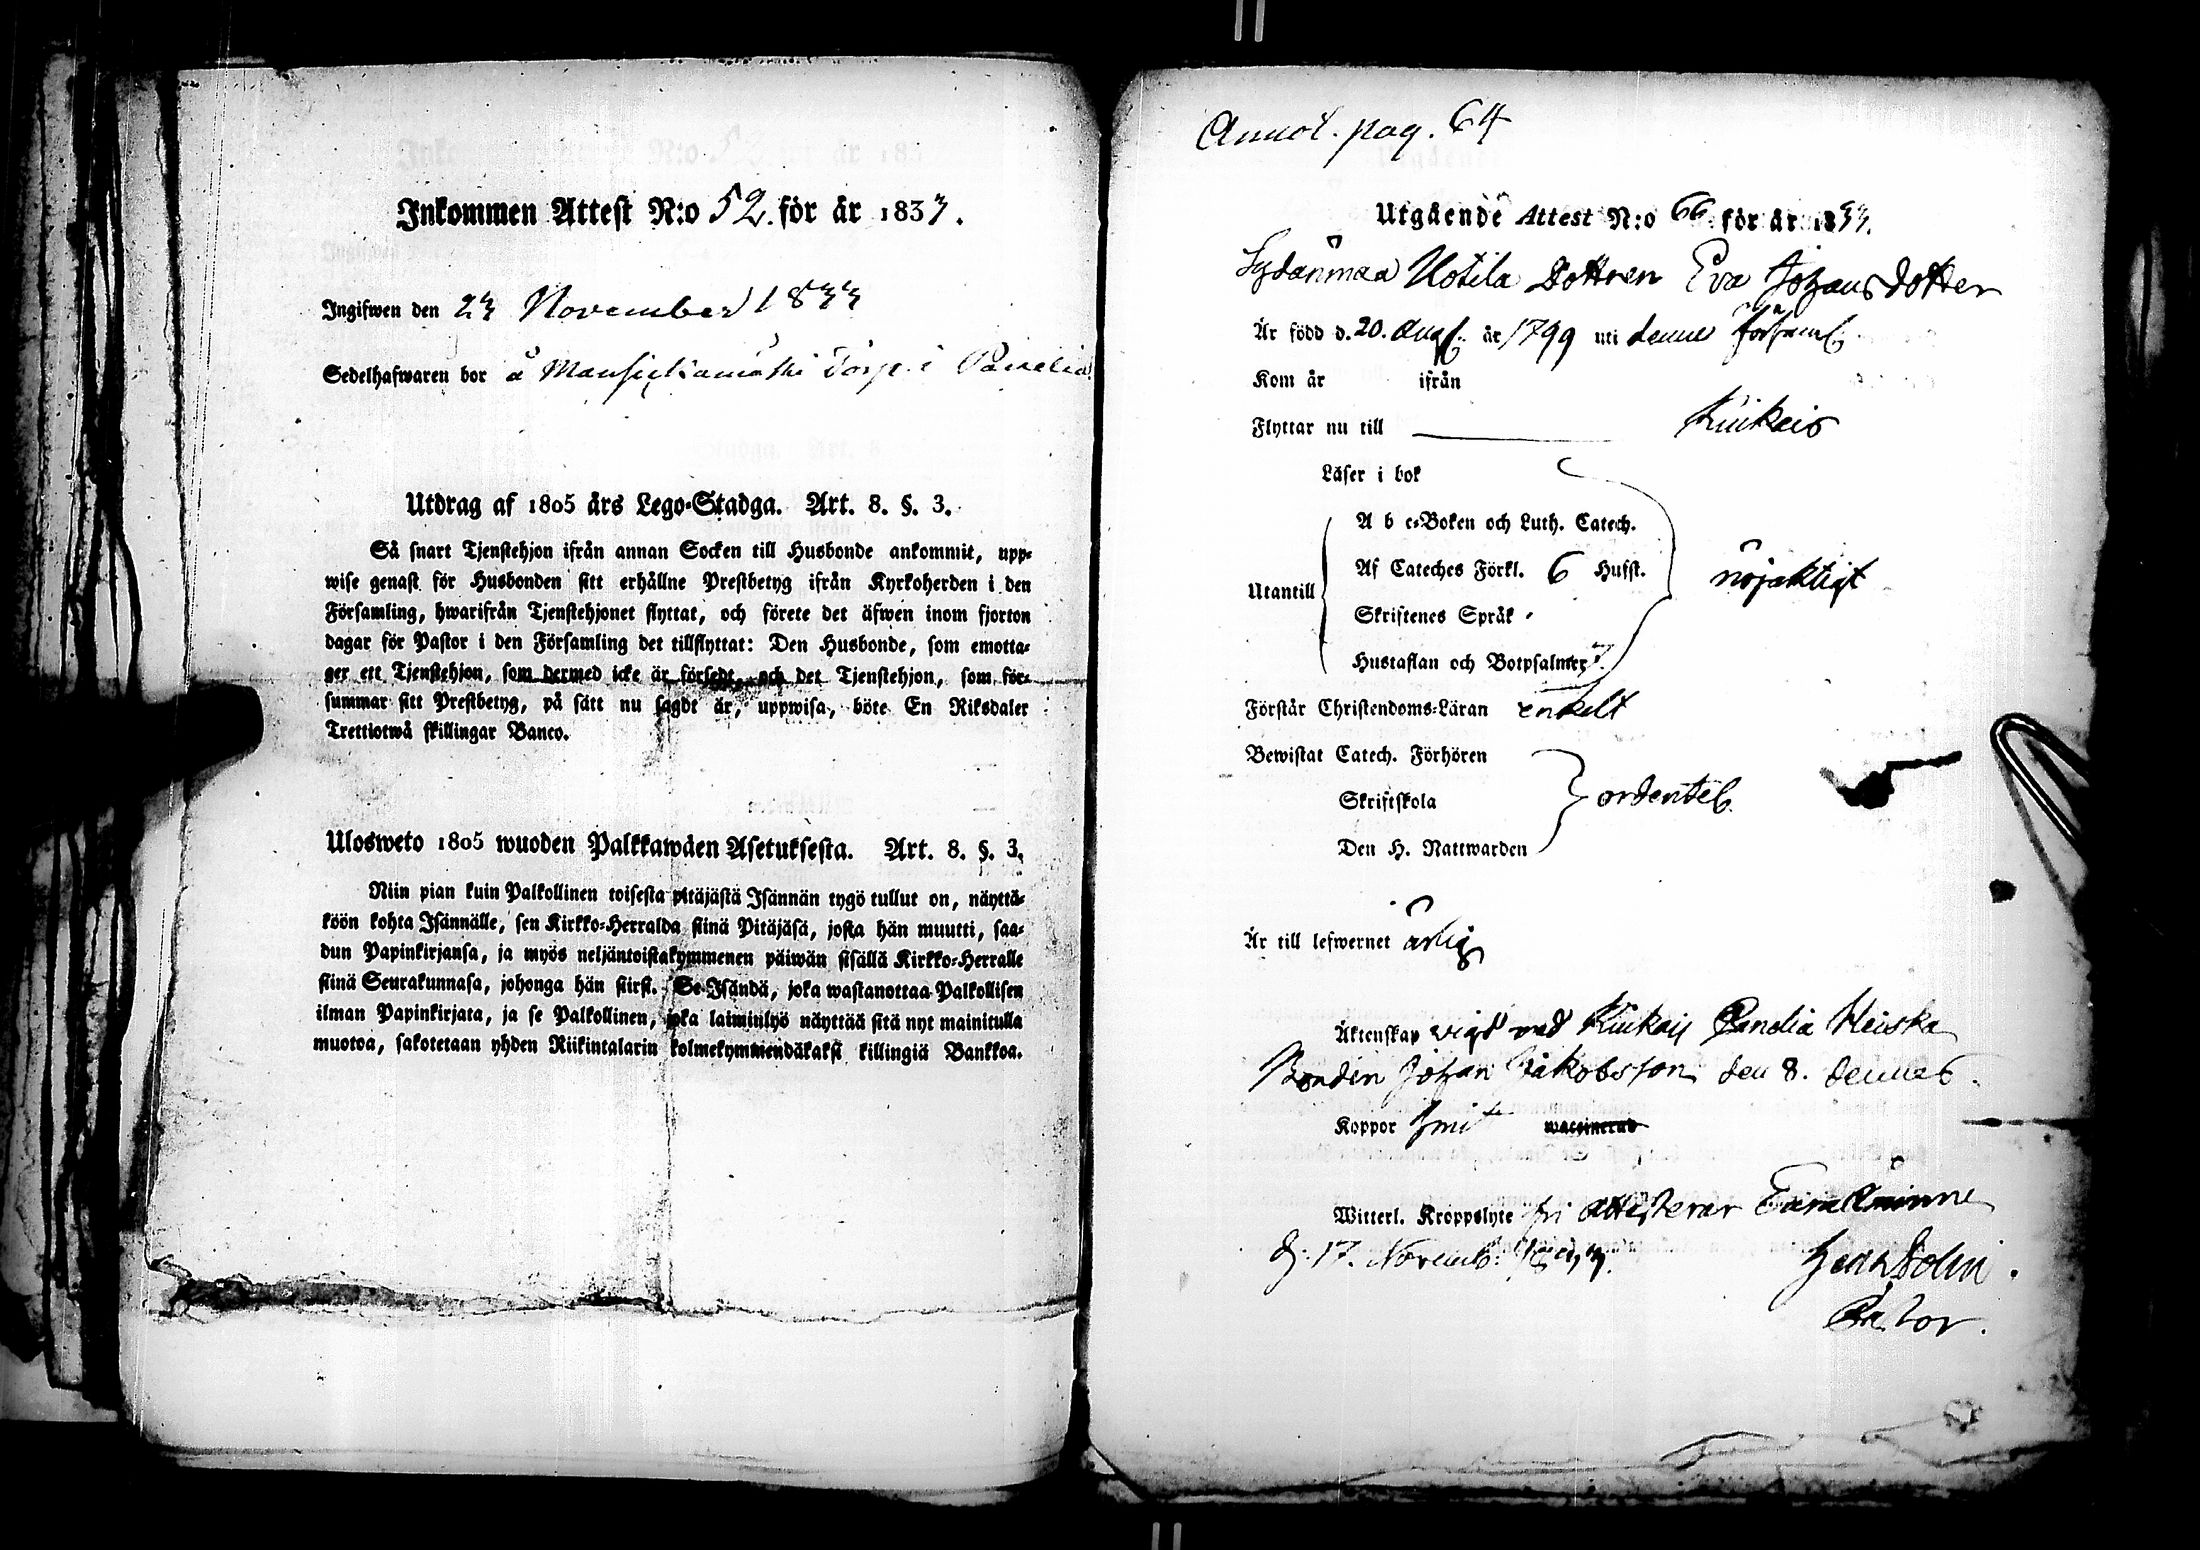 Inkommen Attest N:o 52. för år 1833.
Ingifwen den 23 November 1833
Sedelhafwaren bor å Torp i Panelia
Utdrag af 1805 års Lego-Stadga. Art. 8. §. 3.
Så snart Tjenstehjon ifrån annan Socken till Husbonde ankommit, upp-
wise genast för Husbonden sitt erhållne Prestbetyg ifrån Kyrkoherden i den
Församling, hwarifrån Tjenstehjonet flyttat, och förete det äfwen inom fjorton
dagar för Pastor i den Församling det tillflyttat: Den Husbonde, som emotta-
ger ett Tjenstehjon, som dermed icke är försedt, och det Tjenstehjon, som för-
summar sitt Prestbetyg, på sätt nu sagdt är, uppwisa, böte En Riksdaler
Trettiotwå skillingar Banco.
Ulosweto 1805 wuoden Palkkawäen Asetuksesta. Art. 8. §. 3.
Niin pian kuin Palkollinen toisesta pitäjästä Isännän tygö tullut on, näyttä-
köön kohta Isännälle, sen Kirkko-Herralda siinä Pitäjäsä, josta hän muutti, saa-
dun Papinkirjansa, ja myös neljäntoistakymmenen päiwän sisällä Kirkko-Herralle
siinä Seurakunnasa, johonga hän siirsi. Se Isändä, joka wastanottaa Palkollisen
ilman Papinkirjata, ja se Palkollinen, joka laiminlyö näyttää sitä nyt mainitulla
muotoa, sakotetaan yhden Riikintalarin kolmekymmendäkaksi killingiä Bankkoa.
Annot. pag. 64
Utgående Attest N:o 66 för år 1833.
Sydänmaa Uotila Dottren Eva Johansdotter
Är född d. 20. Aug. år 1799 uti denne Församl.
Kom år ifrån
Flyttar nu till Kiukais
Läser i bok
A b c-Boken och Luth. Catech.
Af Cateches Förkl. 6 Hufst.
Utantill nöjaktigt
Skriftenes Språk
Hustaflan och Botpsalmer 7.
Förstår Christendoms-Läran enkelt
Bewistat Catech. Förhören
Skriftskola ordentel.
Den H. Nattwarden
Är till lefwernet ärlig
Äktenskap vigd med Kiukais Panelia Heiska
Bonden Johan Jakobsson den 8. dennes.
Koppor haft waccinerad
Witterl. Kroppslyte fri attesterar
d. 17. Novemb. 1833.
Pastor.